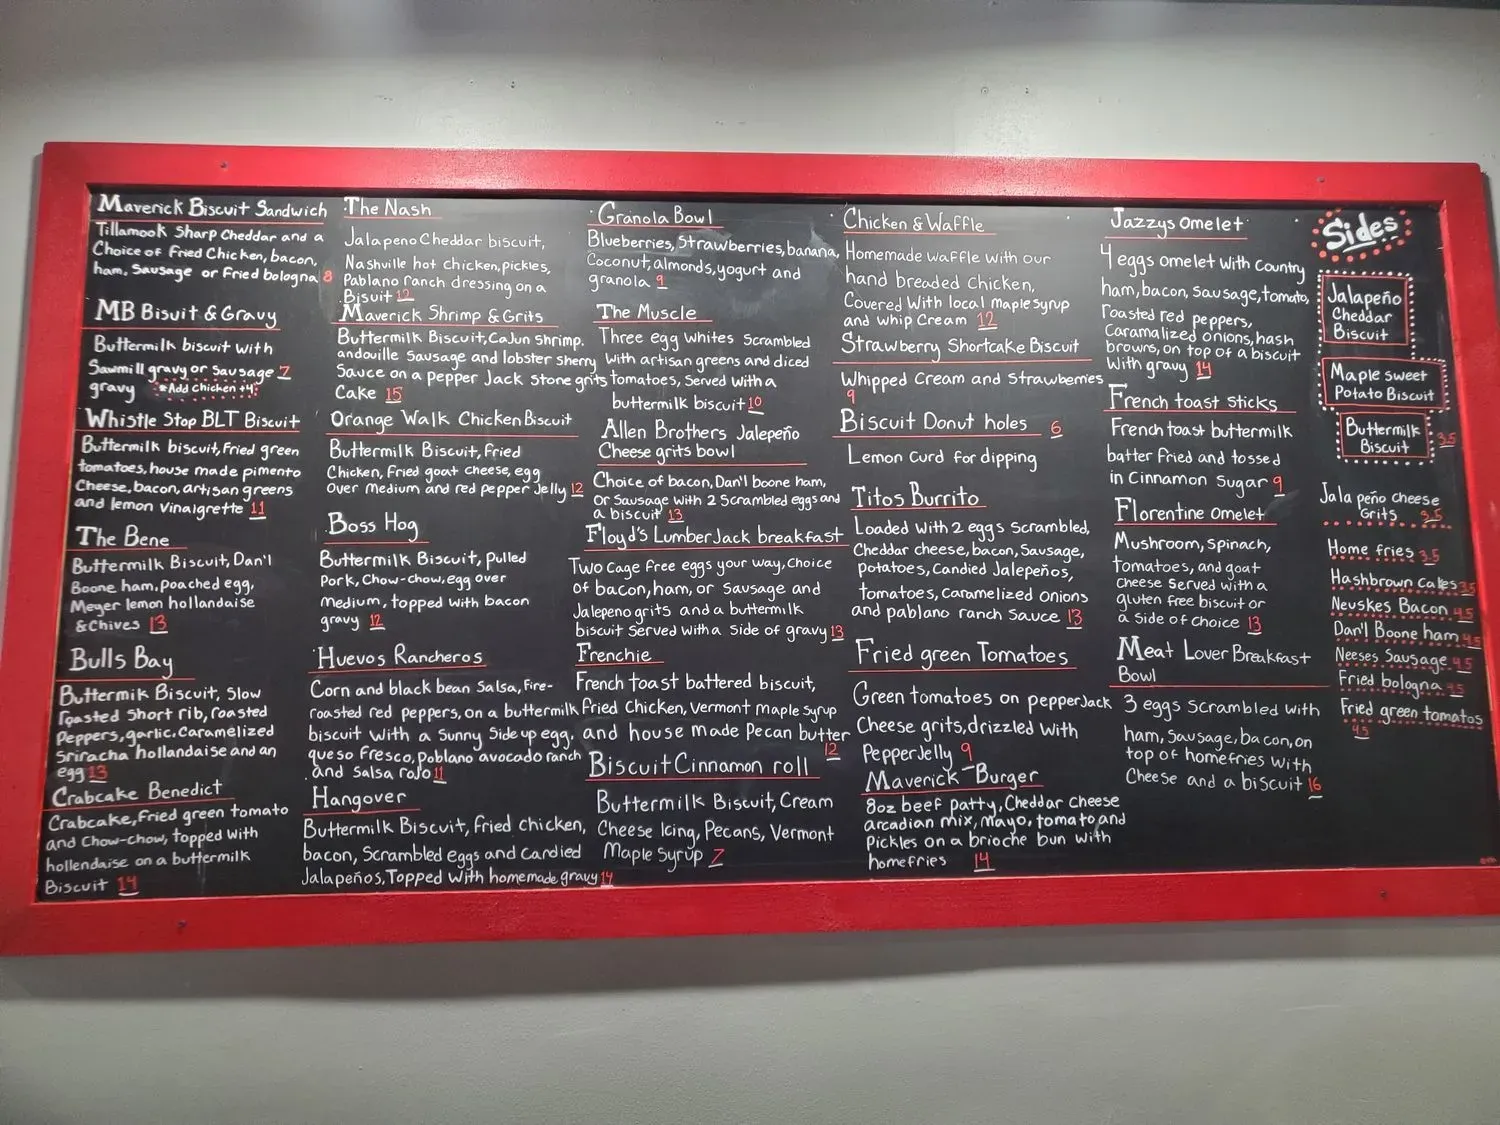 Maverick Biscuit Sandwich
Tillamook Sharp Cheddar and a
Choice of Fried Chicken, bacon,
ham, Sausage or Fried bologna 8
MB Bisuit & Gravy
Buttermilk biscuit with
Sawmill gravy or Sausage 7
gravy *Add chicken +4
Whistle Stop BLT Biscuit
Buttermilk biscuit, Fried green
tomatoes, house made pimento
Cheese, bacon, artisan greens
and lemon Vinaigrette 11
The Bene
Buttermilk Biscuit, Dan'l
Boone ham, poached egg,
Meyer lemon hollandaise
& Chives 13
Bulls Bay
Buttermik Biscuit, Slow
roasted Short rib, roasted
Peppers, garlic. Caramelized
Sriracha hollandaise and an
egg 13
Crabcake Benedict
Crabcake, Fried green tomato
and Chow-chow, topped with
hollendaise on a buttermilk
Biscuit 14
The Nash
Jalapeno Cheddar biscuit,
Nashville hot chicken, pickles,
Pablano ranch dressing on a
Bisuit 12
Maverick Shrimp & Grits
Buttermilk Biscuit, Cajun shrimp.
andouille Sausage and lobster Sherry
Sauce on a pepper Jack stone grits
Cake 15
Orange Walk Chicken Biscuit
Buttermilk Biscuit, Fried
Chicken, Fried goat cheese, egg
over Medium and red pepper Jelly 12
Boss Hog
Buttermilk Biscuit, pulled
Pork, Chow-chow, egg over
Medium, topped with bacon
gravy 12
Huevos Rancheros
Corn and black bean Salsa, Fire-
roasted red peppers, on a buttermilk
biscuit with a Sunny Side up egg,
queso Fresco, Poblano avocado ranch
and Salsa rojo 11
Hangover
Buttermilk Biscuit, Fried chicken,
bacon, Scrambled eggs and Candied
Jalapeños, Topped with homemade gravy 14
Granola Bowl
Blueberries, Strawberries, banana,
Coconut, almonds, yogurt and
granola 9
The Muscle
Three egg Whites Scrambled
With artisan greens and diced
Tomatoes, Served with a
buttermilk biscuit 10
Allen Brothers Jalepeño
Cheese grits bowl
Choice of bacon, Dan'l boone ham,
or Sausage with 2 Scrambled eggs and
a biscuit 13
Floyd's Lumber Jack breakfast
Two Cage Free eggs your way, Choice
of bacon, ham, or Sausage and
Jalepeno grits and a buttermilk
biscuit Served with a Side of gravy 13
Frenchie
French toast battered biscuit,
Fried Chicken, Vermont Maple Syrup
and house made Pecan butter
12
Biscuit Cinnamon roll
Buttermilk Biscuit, Cream
Cheese Icing, Pecans, Vermont
Maple Syrup 7
Chicken & Waffle
Homemade waffle with our
hand breaded Chicken,
Covered With local maple syrup
and whip Cream 12
Strawberry Shortcake Biscuit
Whipped Cream and Strawberries
9
Biscuit Donut holes 6
Lemon Curd for dipping
Titos Burrito
Loaded with 2 eggs Scrambled,
Cheddar cheese, bacon, Sausage,
potatoes, Candied Jalepeños,
tomatoes, Caramelized onions
and pablano ranch Sauce 13
Fried green Tomatoes
Green tomatoes on pepperJack
Cheese grits, drizzled With
Pepper Jelly 9
Maverick-Burger
8oz beef patty, Cheddar cheese
arcadian mix, Mayo, tomato and
Pickles on a brioche bun with
homefries 14
Jazzys Omelet
4 eggs omelet with Country
ham, bacon, Sausage, tomato,
roasted red peppers,
Caramalized onions, hash
browns, on top of a biscuit
With gravy 14
French toast sticks
French toast buttermilk
batter Fried and tossed
in Cinnamon Sugar 9
Florentine Omelet
Mushroom, Spinach,
tomatoes, and goat
Cheese Served with a
gluten free biscuit or
a Side of Choice 13
Meat Lover Breakfast
Bowl
3 eggs Scrambled with
ham, Sausage, bacon, on
top of homefries with
Cheese and a biscuit 16
Sides
Jalapeño
Cheddar
Biscuit
Maple sweet
Potato Biscuit
Buttermilk
Biscuit 3.5
Jalapeño cheese
Grits 3.5
Home fries 3.5
Hashbrown cakes 3.5
Neuskes Bacon 4.5
Dan'l Boone ham 4.5
Neeses Sausage 4.5
Fried bologna 4.5
Fried green tomatos
4.5